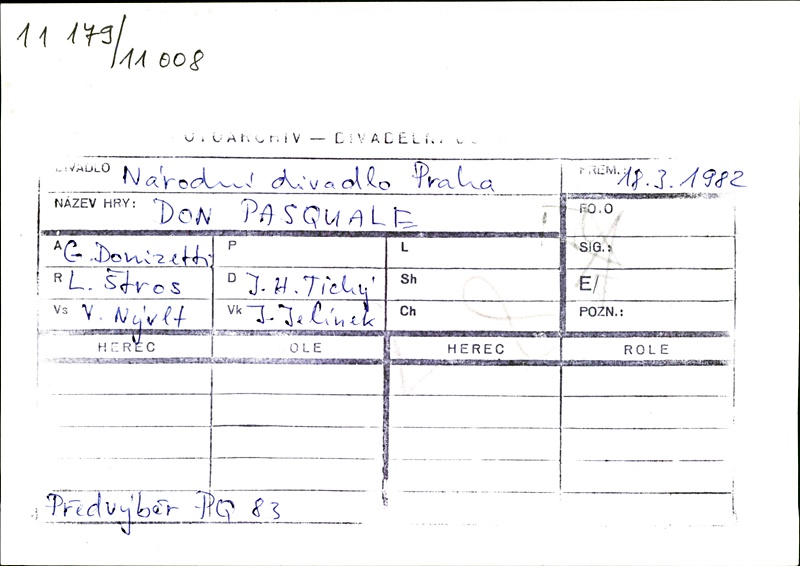 11 179/11 008
DIVADLO Národní divadlo Praha PREM.: 18.3.1982
NÁZEV HRY: DON PASQUALE FO.O
A G. Donizetti P L SIG.:
R L. Štros D J. H. Tichý Sh E/
Vs V. Nývlt Vk J. Jelínek Ch POZN.:
HEREC OLE HEREC ROLE
Předvýběr PQ 83